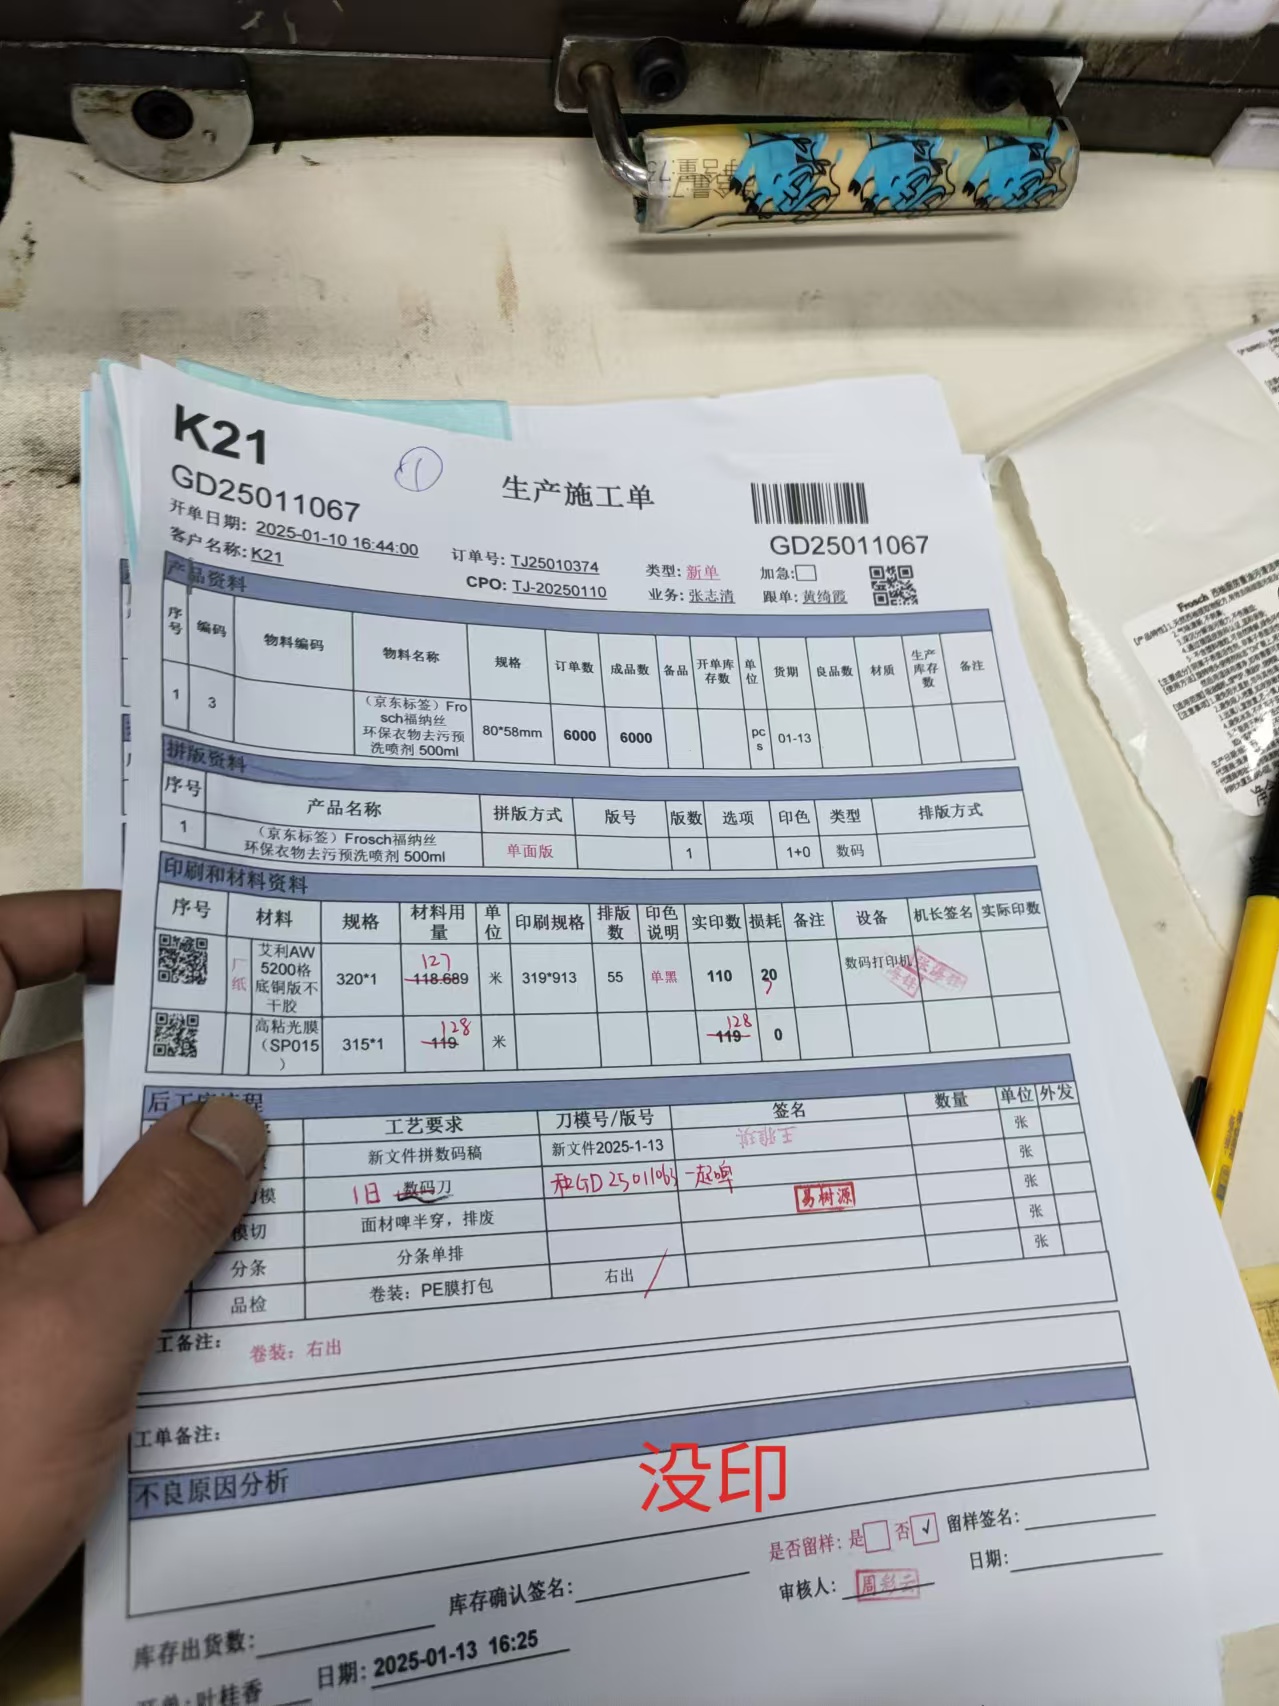 K21
GD25011067
①
生产施工单
GD25011067
开单日期: 2025-01-10 16:44:00
客户名称: K21
订单号: TJ25010374
CPO: TJ-20250110
类型: 新单
加急:
业务: 张志清
跟单: 黄绮霞
产品资料
序号 编码 物料编码 物料名称 规格 订单数 成品数 备品 开单库存数 单位 货期 良品数 材质 生产库存数 备注
1 3 (京东标签)Frosch福纳丝环保衣物去污预洗喷剂 500ml 80*58mm 6000 6000 pcs 01-13
拼版资料
序号 产品名称 拼版方式 版号 版数 选项 印色 类型 排版方式
1 (京东标签)Frosch福纳丝环保衣物去污预洗喷剂 500ml 单面版 1 1+0 数码
印刷和材料资料
序号 材料 规格 材料用量 单位 印刷规格 排版数 印色说明 实印数 损耗 备注 设备 机长签名 实际印数
厂纸 艾利AW5200格底铜版不干胶 320*1 127 118.689 米 319*913 55 单黑 110 20 数码打印机
高粘光膜(SP015) 315*1 128 119 米 128 119 0
后工序流程
工艺要求 刀模号/版号 签名 数量 单位 外发
新文件拼数码稿 新文件2025-1-13 王雅琪 张
模 1日 数码刀 和GD25011063一起啤 张
模切 面材啤半穿,排废 易树源 张
分条 分条单排 张
品检 卷装:PE膜打包 右出 张
工备注: 卷装:右出
工单备注:
不良原因分析
没印
是否留样: 是 否 √ 留样签名:
库存确认签名:
审核人: 周彩云
日期:
库存出货数:
日期: 2025-01-13 16:25
开单: 叶桂香